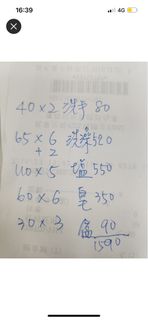 16:39
4G
40×2 洗手 80
65×6 洗潔 520
+2
110×5 塩 550
60×6 皂 350
30×3 90
1590